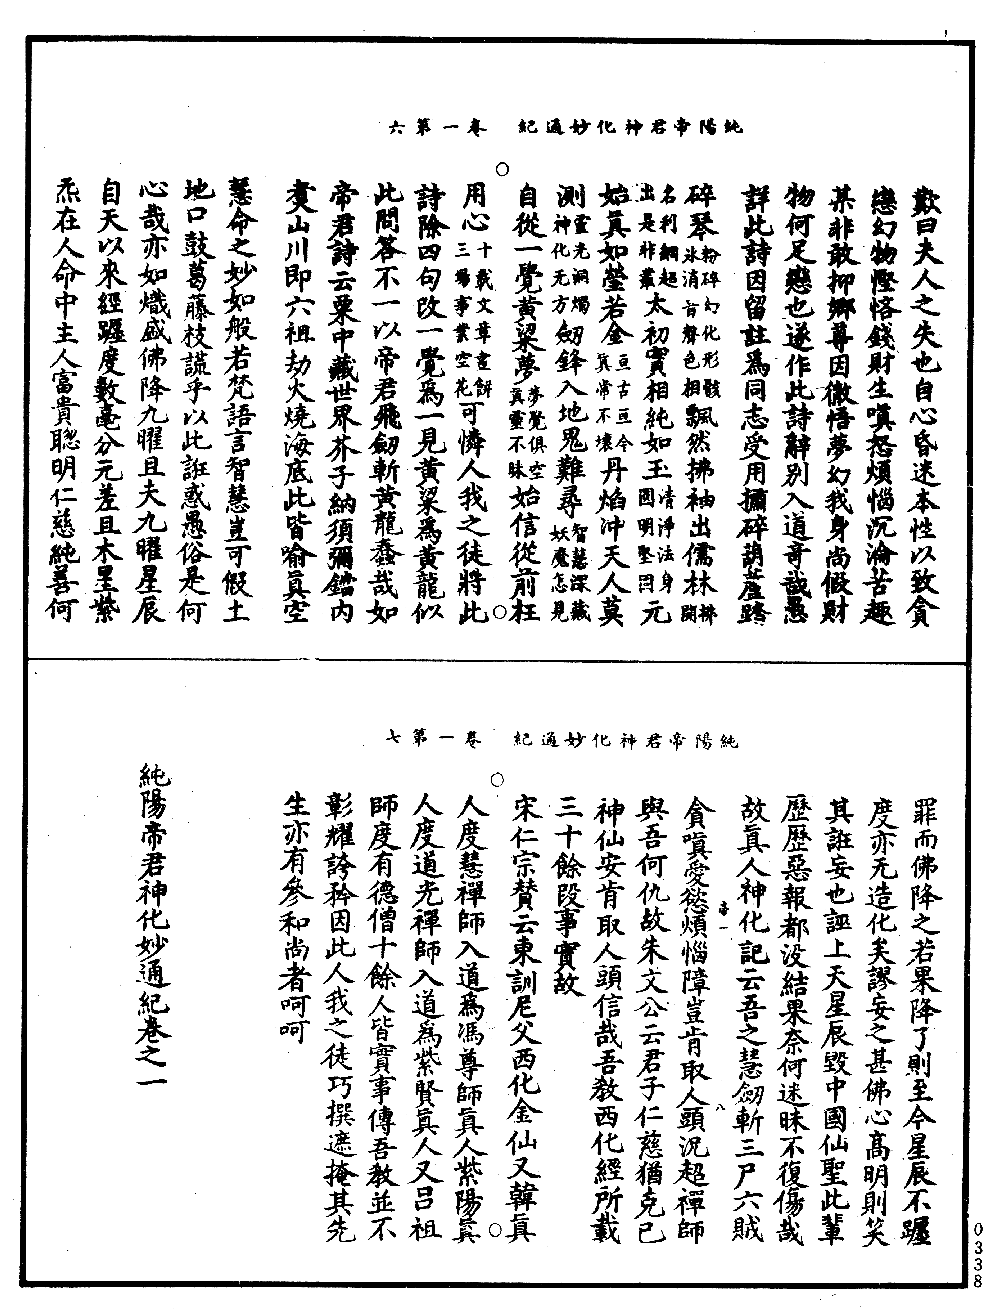 純陽帝君神化妙通紀　卷一第六
歎曰夫人之失也自心昏迷本性以致貪
戀幻物慳悋錢財生嗔怒煩惱沉淪苦趣
某非敢抑鄉尊因徹悟夢幻我身尚假財
物何足戀也遂作此詩辭別入道奇哉愚
詳此詩因留註爲同志受用擿碎葫蘆踏
碎琴粉碎幻化形骸氷消盲聲色相飄然拂袖出儒林掀開
名利網超出是非叢太初實相純如玉清淨法身圓明堅固元
始眞如瑩若金亘古亘今眞常不壞丹焰冲天人莫
測靈光洞燭神化无方劒鋒入地鬼難尋智慧深藏妖魔怎見
自從一覺黃粱夢夢覺俱空眞靈不昧始信從前枉
用心十載文章畫餅三場事業空花可憐人我之徒將此
詩除四句改一覺爲一見黃粱爲黃龍似
此問答不一以帝君飛劒斬黃龍蠢哉如
帝君詩云粟中藏世界芥子納須彌鐺内
煑山川即六祖劫火燒海底此皆喻眞空
慧命之妙如般若梵語言智慧豈可假土
地口鼓葛藤枝謊乎以此誑惑愚俗是何
心哉亦如熾盛佛降九曜且夫九曜星辰
自天以來經躔度數毫分元差且木星紫
炁在人命中主人富貴聰明仁慈純善何
純陽帝君神化妙通紀　卷一第七
罪而佛降之若果降了則至今星辰不躔
度亦无造化矣謬妄之甚佛心高明則笑
其誑妄也誣上天星辰毀中國仙聖此輩
歷歷惡報都没結果奈何迷昧不復傷哉
故眞人神化記云吾之慧劒斬三尸六賊
貪嗔愛慾煩惱障豈肯取人頭況超禪師
與吾何仇故朱文公云君子仁慈猶克己
神仙安肯取人頭信哉吾教西化經所載
三十餘段事實故
宋仁宗賛云東訓尼父西化金仙又韓眞
人度慧禪師入道爲馮尊師眞人紫陽眞
人度道光禪師入道爲紫賢眞人又吕祖
師度有德僧十餘人皆實事傳吾教並不
彰耀誇矜因此人我之徒巧撰遮掩其先
生亦有參和尚者呵呵
純陽帝君神化妙通紀卷之一
0338